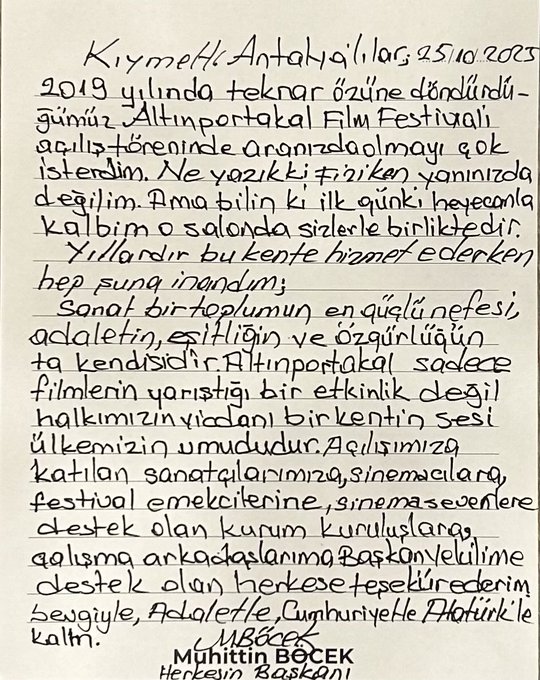 Kıymetli Antalyalılar; 25/10/2025
2019 yılında tekrar özüne döndürdü-
ğümüz Altınportakal Film Festivali
açılış töreninde aranızda olmayı çok
isterdim. Ne yazıkki fiziken yanınızda
değilim. Ama bilin ki ilk günki heyecanla
kalbim o salonda sizlerle birliktedir.
Yıllardır bu kente hizmet ederken
hep şuna inandım;
Sanat bir toplumun en güçlü nefesi,
adaletin, eşitliğin ve özgürlüğün
ta kendisidir. Altınportakal sadece
filmlerin yarıştığı bir etkinlik değil
halkımızın vicdanı bir kentin sesi
ülkemizin umududur. Açılışımıza
katılan sanatçılarımıza, sinemacılara,
festival emekcilerine, sinemaseverlere
destek olan kurum kuruluşlara,
çalışma arkadaşlarıma, Başkanvekilime
destek olan herkese teşekür ederim
Sevgiyle, Adaletle, Cumhuriyetle Atatürk'le
kalın.
MBÖCEK
Muhittin BÖCEK
Herkesin Başkanı